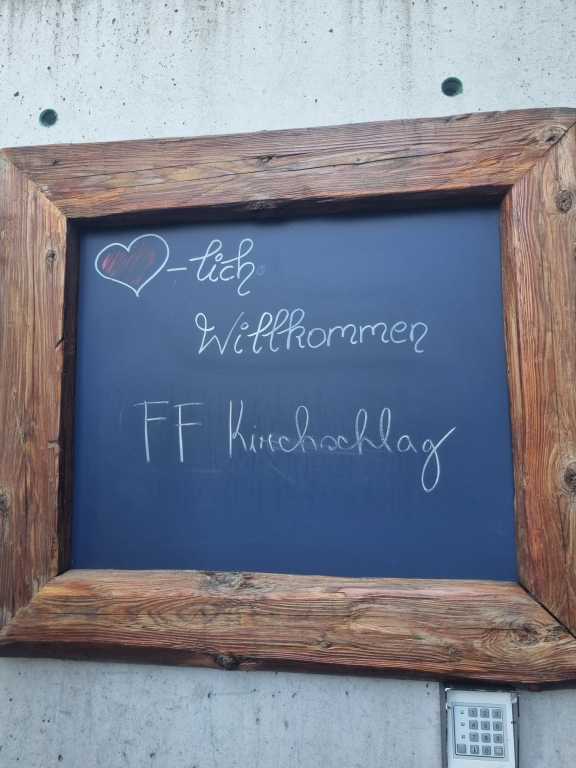 ❤-lich
Willkommen
FF Kirchschlag